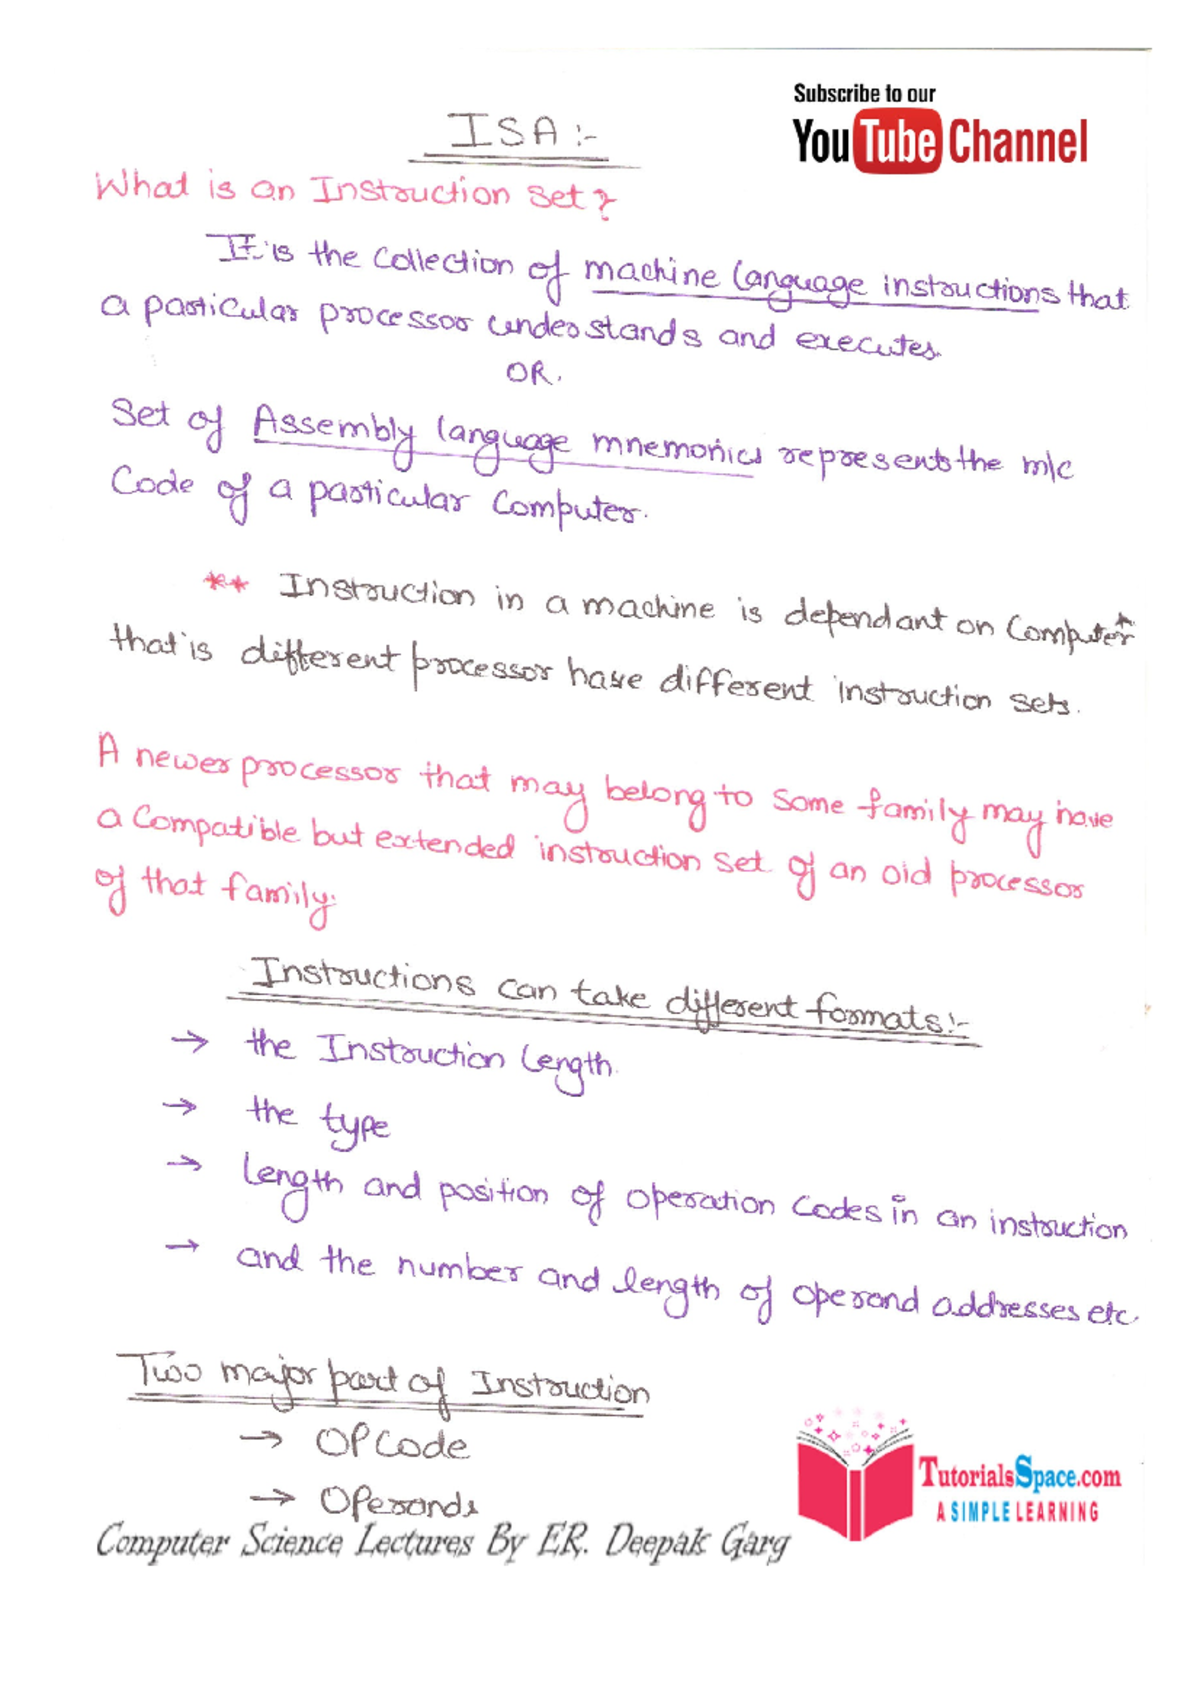 Subscribe to our
YouTube Channel
ISA :-
What is an Instruction set?
It is the collection of machine language instructions that
a particular processor understands and executes.
OR.
Set of Assembly language mnemonics represents the m/c
Code of a particular Computer.
** Instruction in a machine is dependant on Computer
that is different processor have different instruction sets.
A newer processor that may belong to some family may have
a compatible but extended instruction set of an old processor
of that family.
Instructions can take different formats:-
→ the Instruction length.
→ the type
→ length and position of operation codes in an instruction
→ and the number and length of operand addresses etc.
Two major part of Instruction
→ OPCode
→ Operands
TutorialsSpace.com
A SIMPLE LEARNING
Computer Science Lectures By ER. Deepak Garg